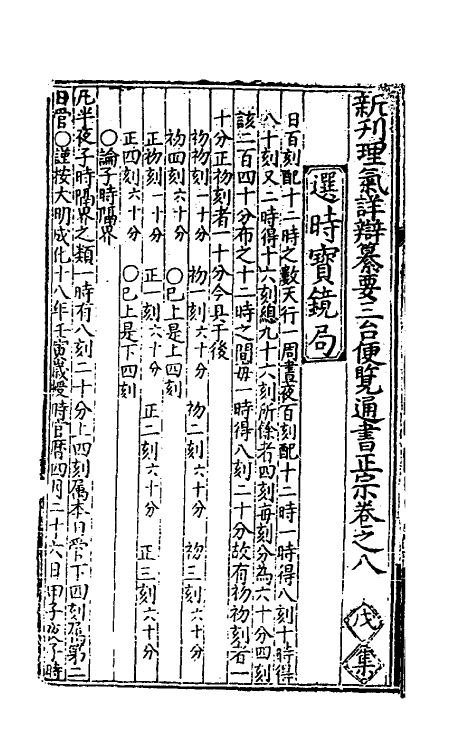 新刊理氣詳辯纂要三台便覽通書正宗卷之八 戊集
選時寶鏡局
日百刻配十二時之數天行一周晝夜百刻配十二時一時得八刻十時得
八十刻又二時得十六刻總九十六刻所餘者四刻每刻分為六十分四刻
該二百四十分布之十二時之間每一時得八刻二十分故有初初刻者一
十分正初刻者一十分今具于後
初初刻一十分 初一刻六十分 初二刻六十分 初三刻六十分
初四刻六十分 ○已上是上四刻
正初刻一十分 正一刻六十分 正二刻六十分 正三刻六十分
正四刻六十分 ○已上是下四刻
○論子時隔界
凡半夜子時隔界之類一時有八刻二十分上四刻屬本日管下四刻屬第二
日管○謹按大明成化十八年壬寅歲授時官曆四月二十六日甲子夜子時